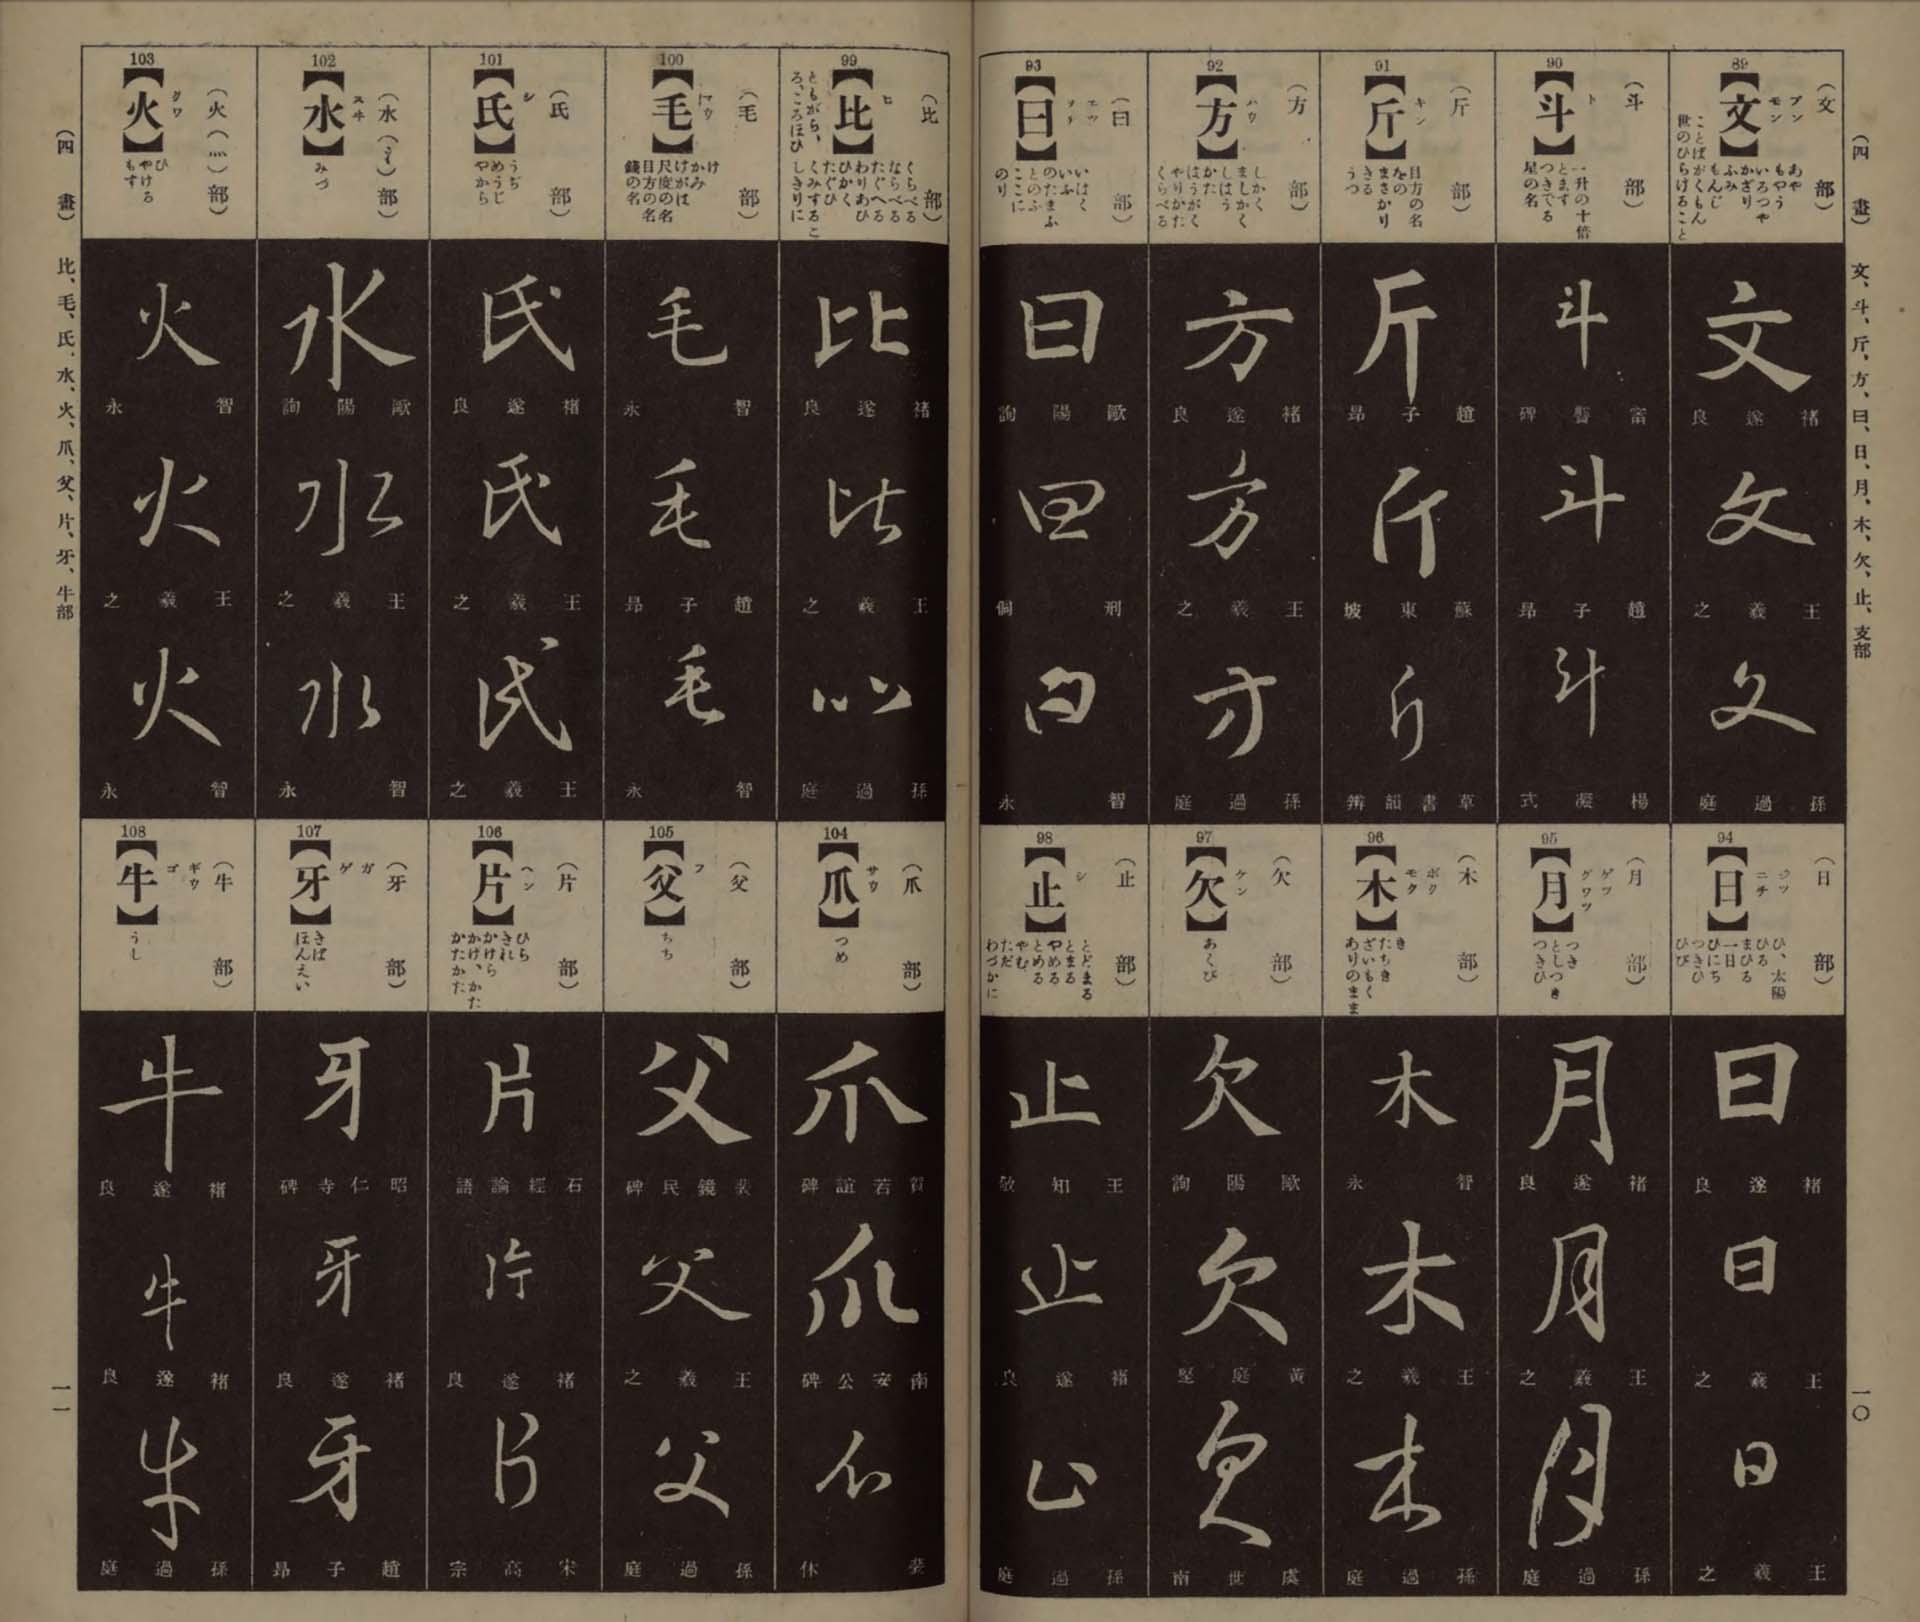 （四畫）
文、斗、斤、方、曰、日、月、木、欠、止、支部
一〇
89
（文部）
【文】
ブン
モン
あや
もやう
いろつや
かざり
ふみ
もんじ
ことばがくもん
世のひらけること
文
褚遂良
文
王羲之
文
孫過庭
90
（斗部）
【斗】
ト
一升の十倍
とます
つきでる
星の名
斗
斗
趙子昂
斗
楊凝式
91
（斤部）
【斤】
キン
目方の名
をの
まさかり
きる
うつ
斤
趙子昂
斤
蘇東坡
斤
草書韻辨
92
（方部）
【方】
ハウ
しかく
ましかく
しはう
かた
はうがく
やりかた
くらべる
方
褚遂良
方
王羲之
方
孫過庭
93
（曰部）
【曰】
エツ
ヲチ
いはく
いふ
のたまふ
とのふ
ここに
のり
曰
歐陽詢
曰
刑侗
曰
智永
94
（日部）
【日】
ジツ
ニチ
ひ、太陽
ひる
まひる
一日
ひにち
つきひ
ひび
日
褚遂良
日
王羲之
日
王羲之
95
（月部）
【月】
ゲツ
グワツ
つき
としつき
つきひ
月
褚遂良
月
王羲之
月
孫過庭
96
（木部）
【木】
ボク
モク
き
たちき
ざいもく
ありのまま
木
智永
木
王羲之
木
孫過庭
97
（欠部）
【欠】
ケン
あくび
欠
歐陽詢
欠
黃庭堅
欠
虞世南
98
（止部）
【止】
シ
とどまる
とまる
やめる
とめる
やむ
ただ
わづかに
止
王知敬
止
褚遂良
止
孫過庭
99
（比部）
【比】
ヒ
くらべる
ならべる
たぐへる
わりあひ
ひかく
たぐひ
くみするこ
しきりに
ともがら、
ろ、ころほひ
比
褚遂良
比
王羲之
比
孫過庭
100
（毛部）
【毛】
マウ
け
かみ
けがは
尺度の名
目方の名
錢の名
毛
智永
毛
趙子昂
毛
智永
101
（氏部）
【氏】
シ
うぢ
めうじ
やから
氏
褚遂良
氏
王羲之
氏
王羲之
102
（水（氵）部）
【水】
スヰ
みづ
水
歐陽詢
水
王羲之
水
智永
103
（火（灬）部）
【火】
クワ
ひ
やける
もす
火
智永
火
王羲之
火
智永
104
（爪部）
【爪】
サウ
つめ
爪
賀若誼碑
爪
南安公碑
爪
裴休
105
（父部）
【父】
フ
ちち
父
裴鏡民碑
父
王羲之
父
孫過庭
106
（片部）
【片】
ヘン
ひら
きれ
かけら
かけ、かた
かたかた
片
石經論語
片
褚遂良
片
宋高宗
107
（牙部）
【牙】
ガ
ゲ
きば
ほんえい
牙
昭仁寺碑
牙
褚遂良
牙
趙子昂
108
（牛部）
【牛】
ギウ
ゴ
うし
牛
褚遂良
牛
褚遂良
牛
孫過庭
（四畫）
比、毛、氏、水、火、爪、父、片、牙、牛部
一一